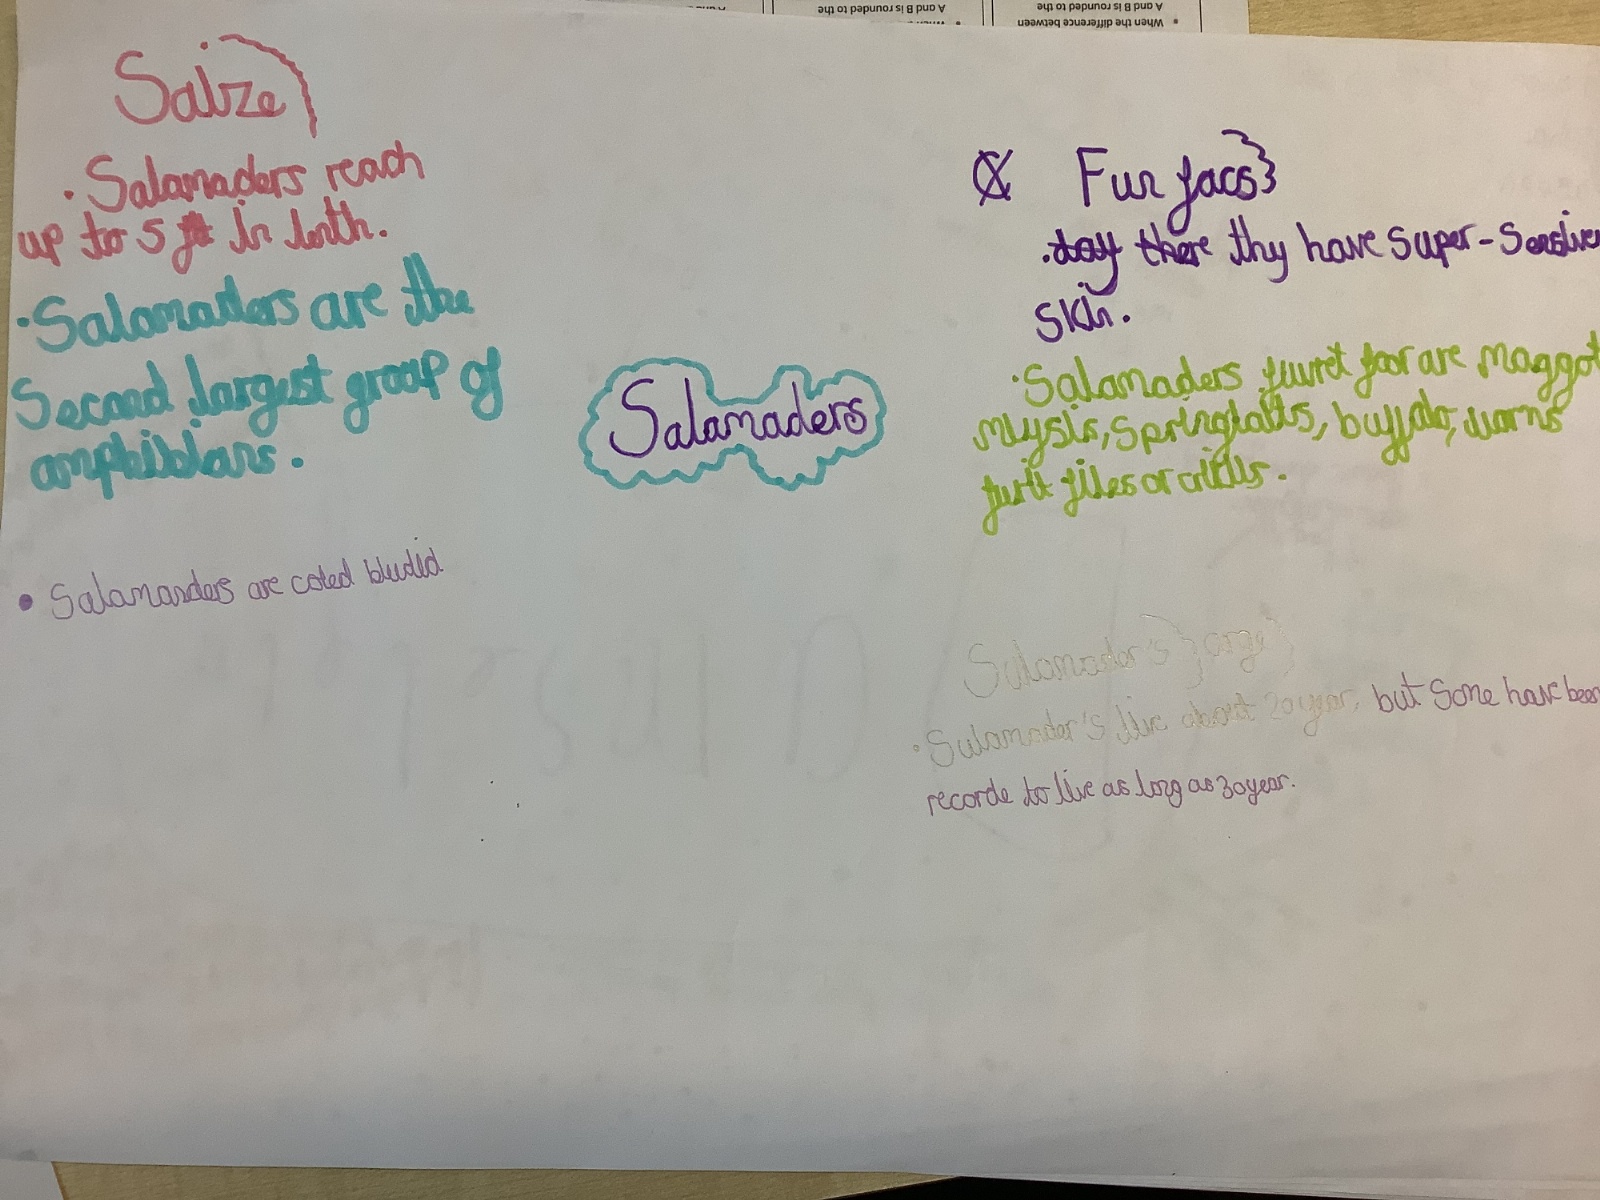 A and B is rounded to the
A and B is rounded to the
When the difference between
Saize
Salamaders reach
up to 5 ft in lenth.
Salamaders are the
Second largest group of
amphibians.
Salamanders are coled bludid
Salamaders
Fun facs
.day there thy have super-sensive
skin.
Salamaders are maggot
springtalls, buffalo, worms
files or
Salamader's
Salamader's live about 20 year, but Some have been
recorde to live as long as 30 year.